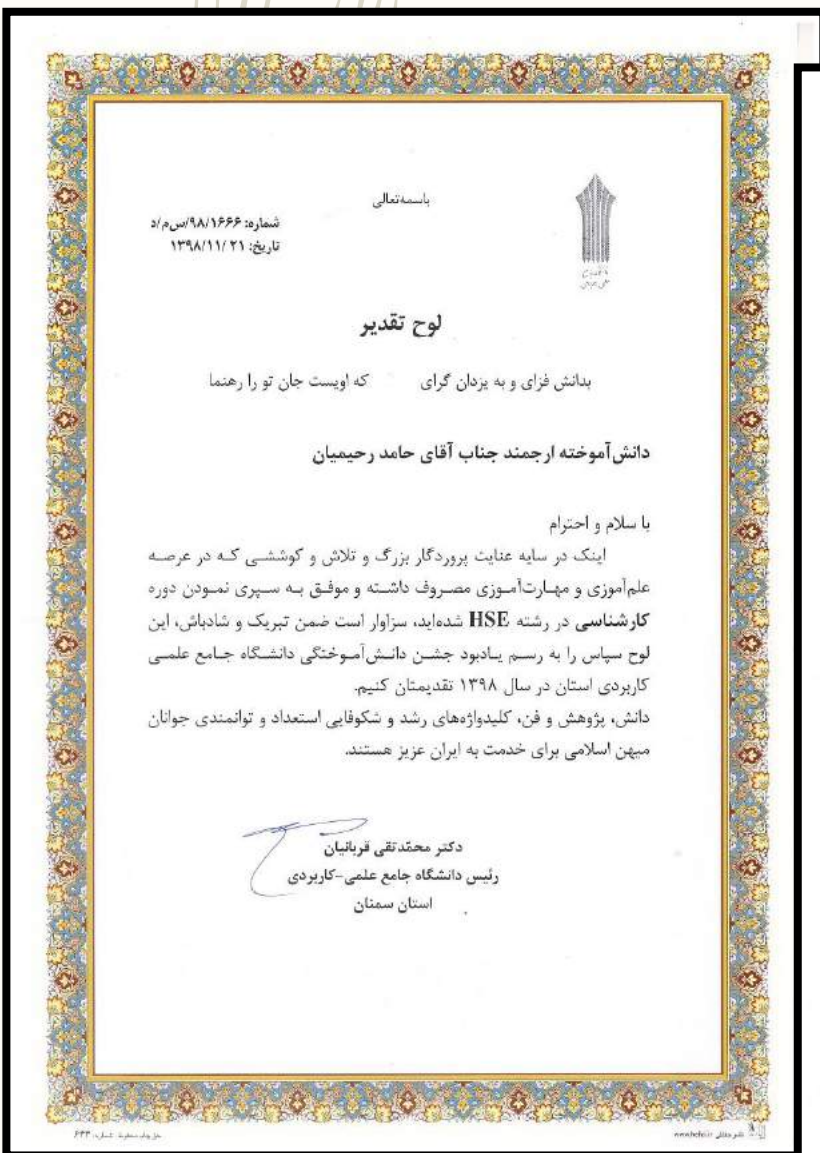 باسمه‌تعالی
شماره: ۹۸/۱۶۶۶/س‌م/د
تاریخ: ۱۳۹۸/۱۱/۲۱
لوح تقدیر
بدانش فزای و به یزدان گرای که اویست جان تو را رهنما
دانش‌آموخته ارجمند جناب آقای حامد رحیمیان
با سلام و احترام
اینک در سایه عنایت پروردگار بزرگ و تلاش و کوششی که در عرصه
علم‌آموزی و مهارت‌آموزی مصروف داشته و موفق به سپری نمودن دوره
کارشناسی در رشته HSE شده‌اید، سزاوار است ضمن تبریک و شادباش، این
لوح سپاس را به رسم یادبود جشن دانش‌آموختگی دانشگاه جامع علمی
کاربردی استان در سال ۱۳۹۸ تقدیمتان کنیم.
دانش، پژوهش و فن، کلیدواژه‌های رشد و شکوفایی استعداد و توانمندی جوانان
میهن اسلامی برای خدمت به ایران عزیز هستند.
دکتر محمّدتقی قربانیان
رئیس دانشگاه جامع علمی-کاربردی
استان سمنان